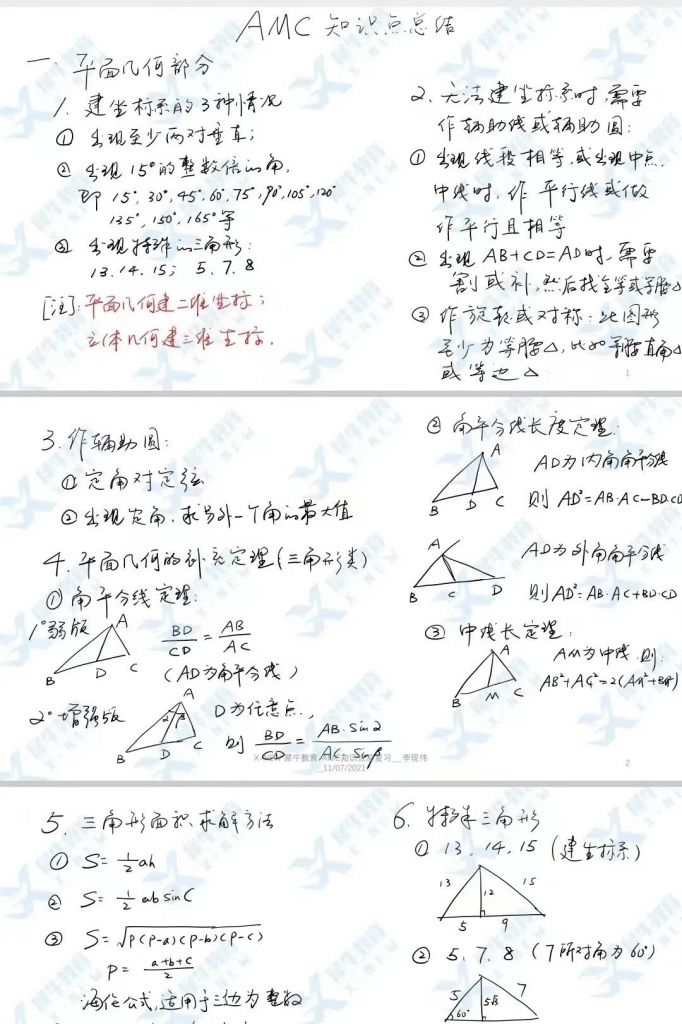 AMC 知识点总结
一. 平面几何部分
1. 建坐标系的3种情况
① 出现至少两对垂直;
② 出现15°的整数倍的角,
即 15°, 30°, 45°, 60°, 75°, 90°, 105°, 120°
135°, 150°, 165° 等
③ 出现特殊的三角形:
13. 14. 15; 5. 7. 8
[注]: 平面几何建二维坐标;
立体几何建三维坐标.
2. 无法建坐标系时,需要
作辅助线或辅助圆:
① 出现线段相等,或出现中点.
中线时,作平行线或做
作平行且相等
② 出现 AB+CD=AD时,需要
割或补,然后找全等或等腰△
③ 作旋转或对称: 此图形
至少为等腰△, 比如等腰直角△
或等边△
1
3. 作辅助圆:
① 定角对定弦
② 出现定角,求另外一个角的最大值
4. 平面几何的补充定理(三角形类)
① 角平分线定理:
1° 弱版
A
B
D
C
BD/CD = AB/AC
(AD为角平分线)
2° 增强版
A
α β
B
D
C
D为任意点,
则 BD/CD = AB·Sinα/AC·Sinβ
② 角平分线长度定理:
A
B
D
C
AD为内角角平分线
则 AD²=AB·AC-BD·CD
A
B
C
D
AD为外角角平分线
则AD²=AB·AC+BD·CD
③ 中线长定理:
A
B
M
C
AM为中线,则:
AB²+AC²=2(AM²+BM²)
犀牛教育 AMC知识点总复习__李现伟
_11/07/2021
2
5. 三角形面积求解方法
① S= 1/2 ah
② S= 1/2 ab sinC
③ S=√P(P-a)(P-b)(P-c)
P= a+b+c/2
海伦公式,适用于三边为整数
6. 特殊三角形
① 13, 14, 15 (建坐标系)
13
12
15
5
9
② 5, 7, 8 (7所对角为60°)
5
7
60°